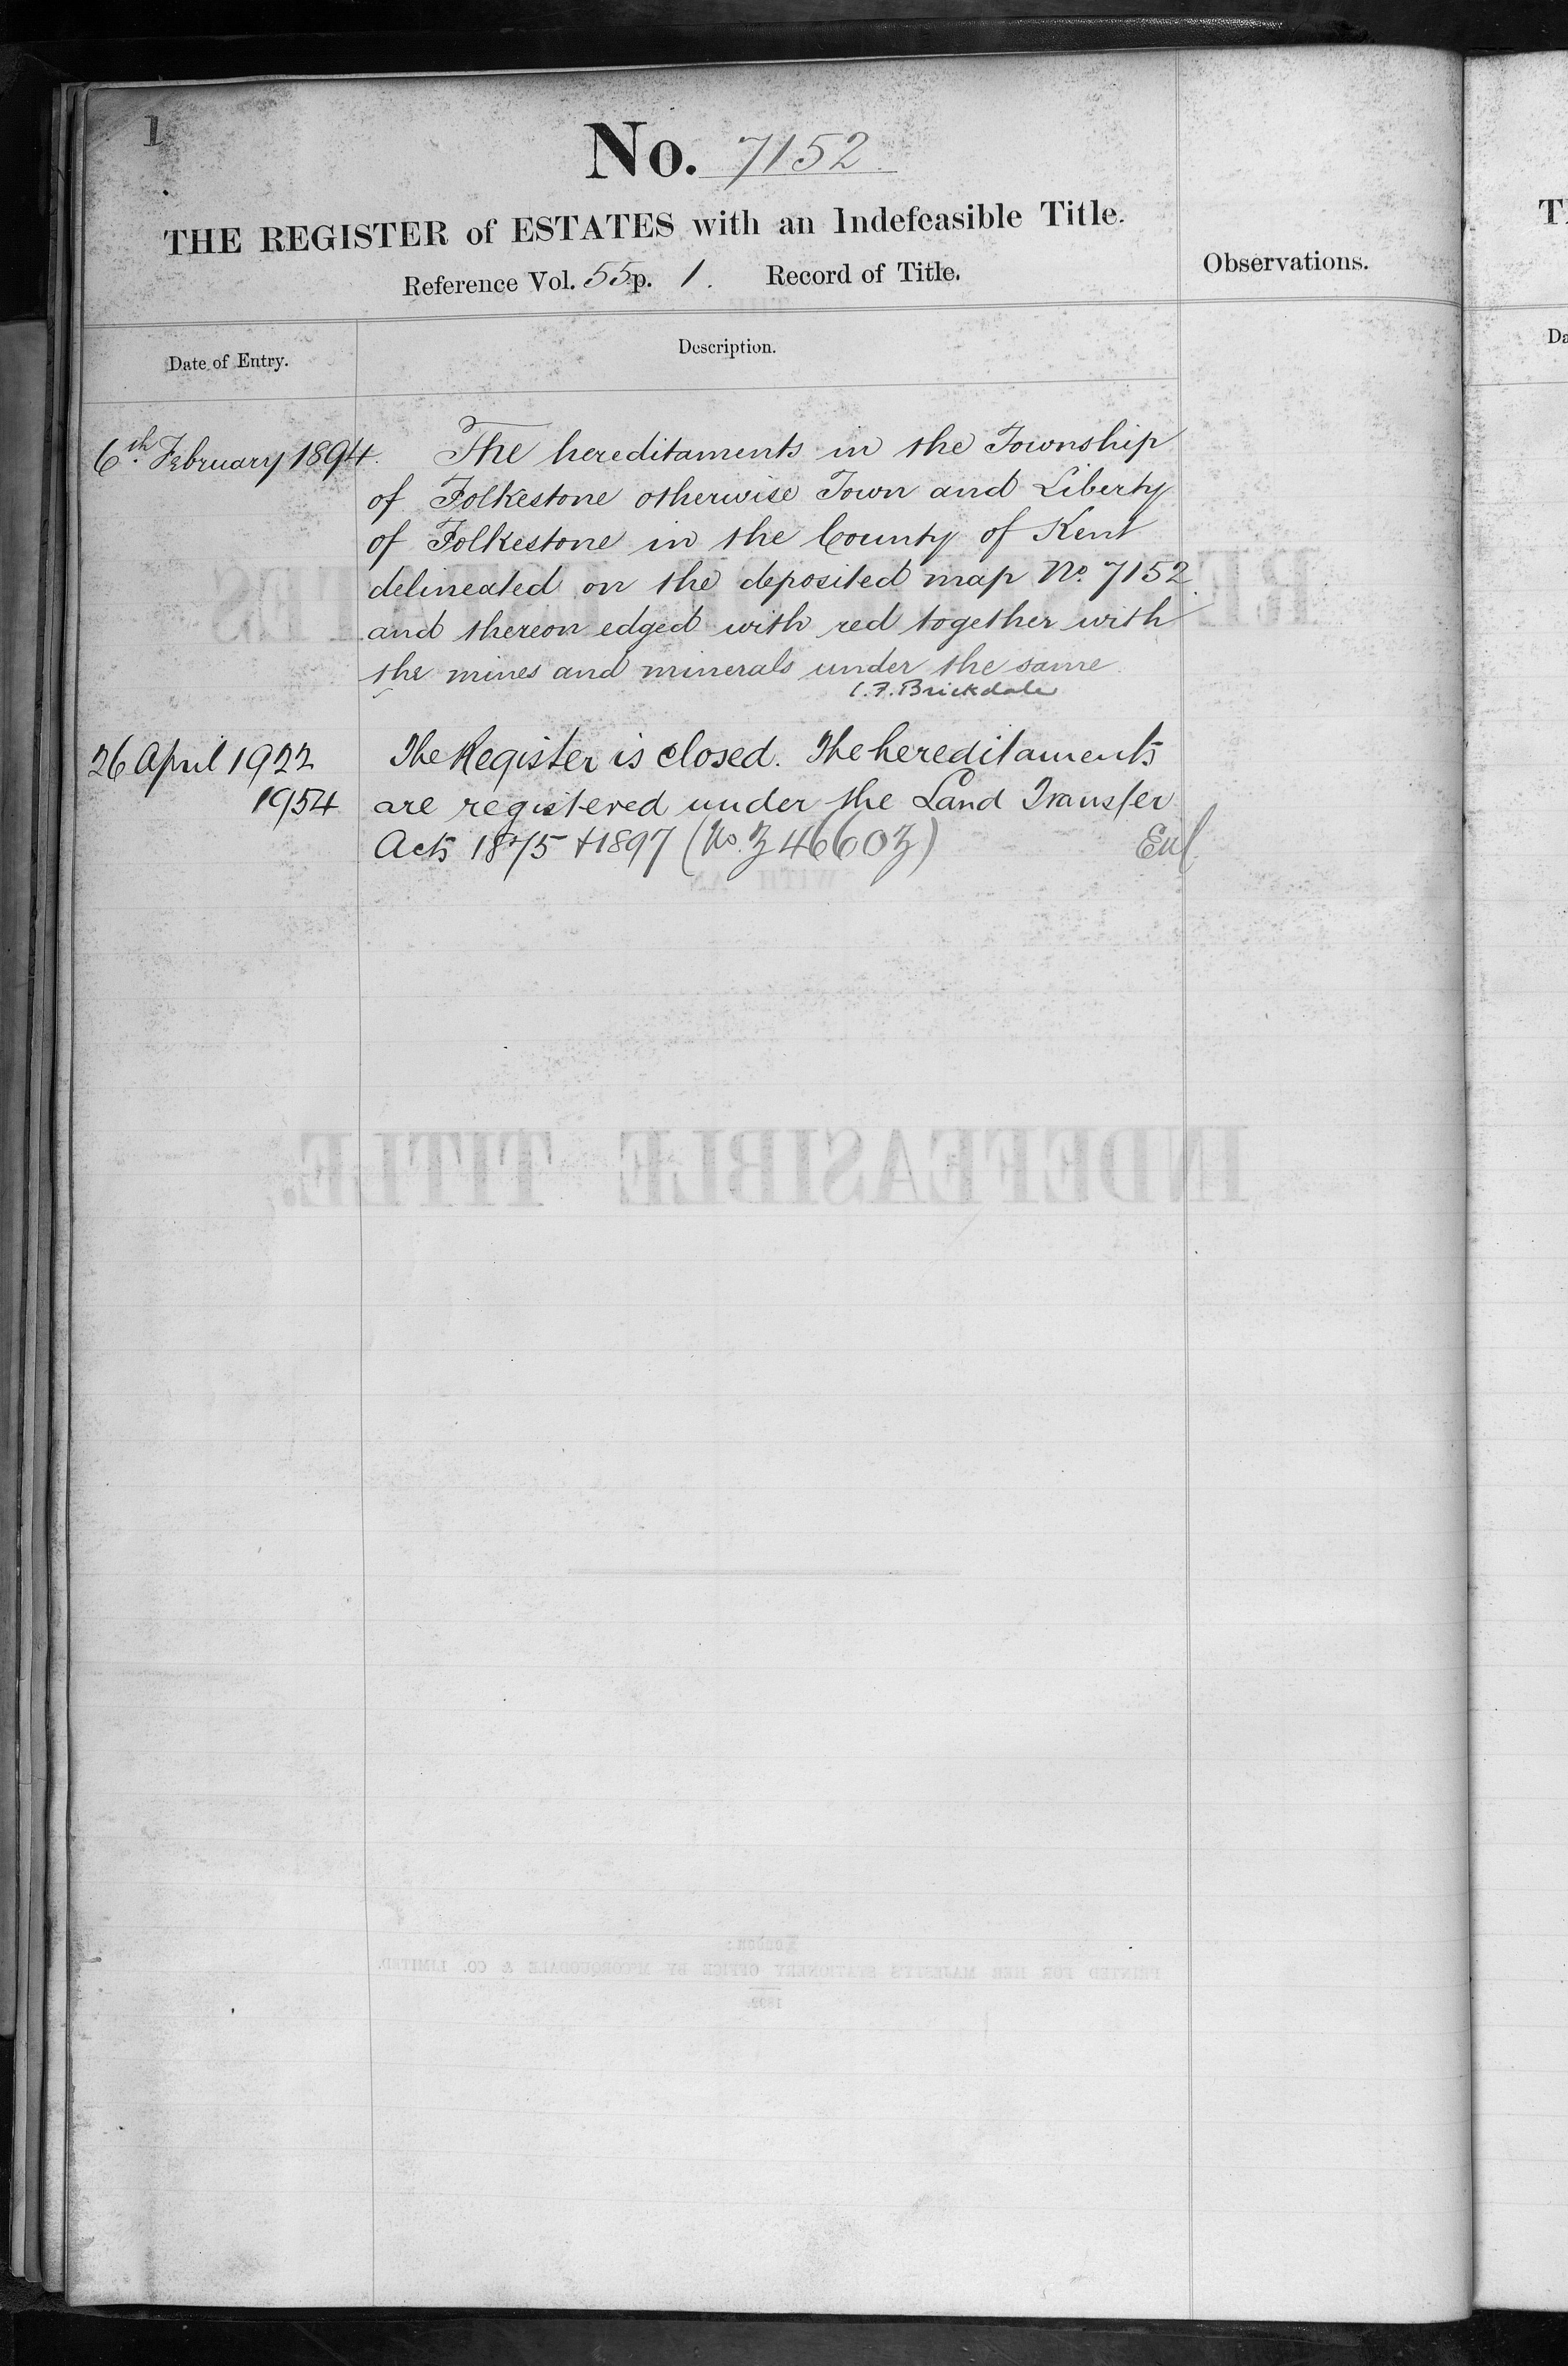 1
No. 7152
THE REGISTER of ESTATES with an Indefeasible Title.
Reference Vol. 55 p. 1. Record of Title.
Observations.
Date of Entry.
Description.
6th February 1894.
The hereditaments in the Township
of Folkestone otherwise Town and Liberty
of Folkestone in the County of Kent
delineated on the deposited map No. 7152
and thereon edged with red together with
the mines and minerals under the same.
C.F. Brickdale
26 April 1922
The Register is closed. The hereditaments
1954
are registered under the Land Transfer
Acts 1875 + 1897 (No. Z 46603)
INDEFEASIBLE TITLE.
WITH AN
London:
PRINTED FOR HER MAJESTY'S STATIONERY OFFICE BY McCORQUODALE & CO. LIMITED.
1892.